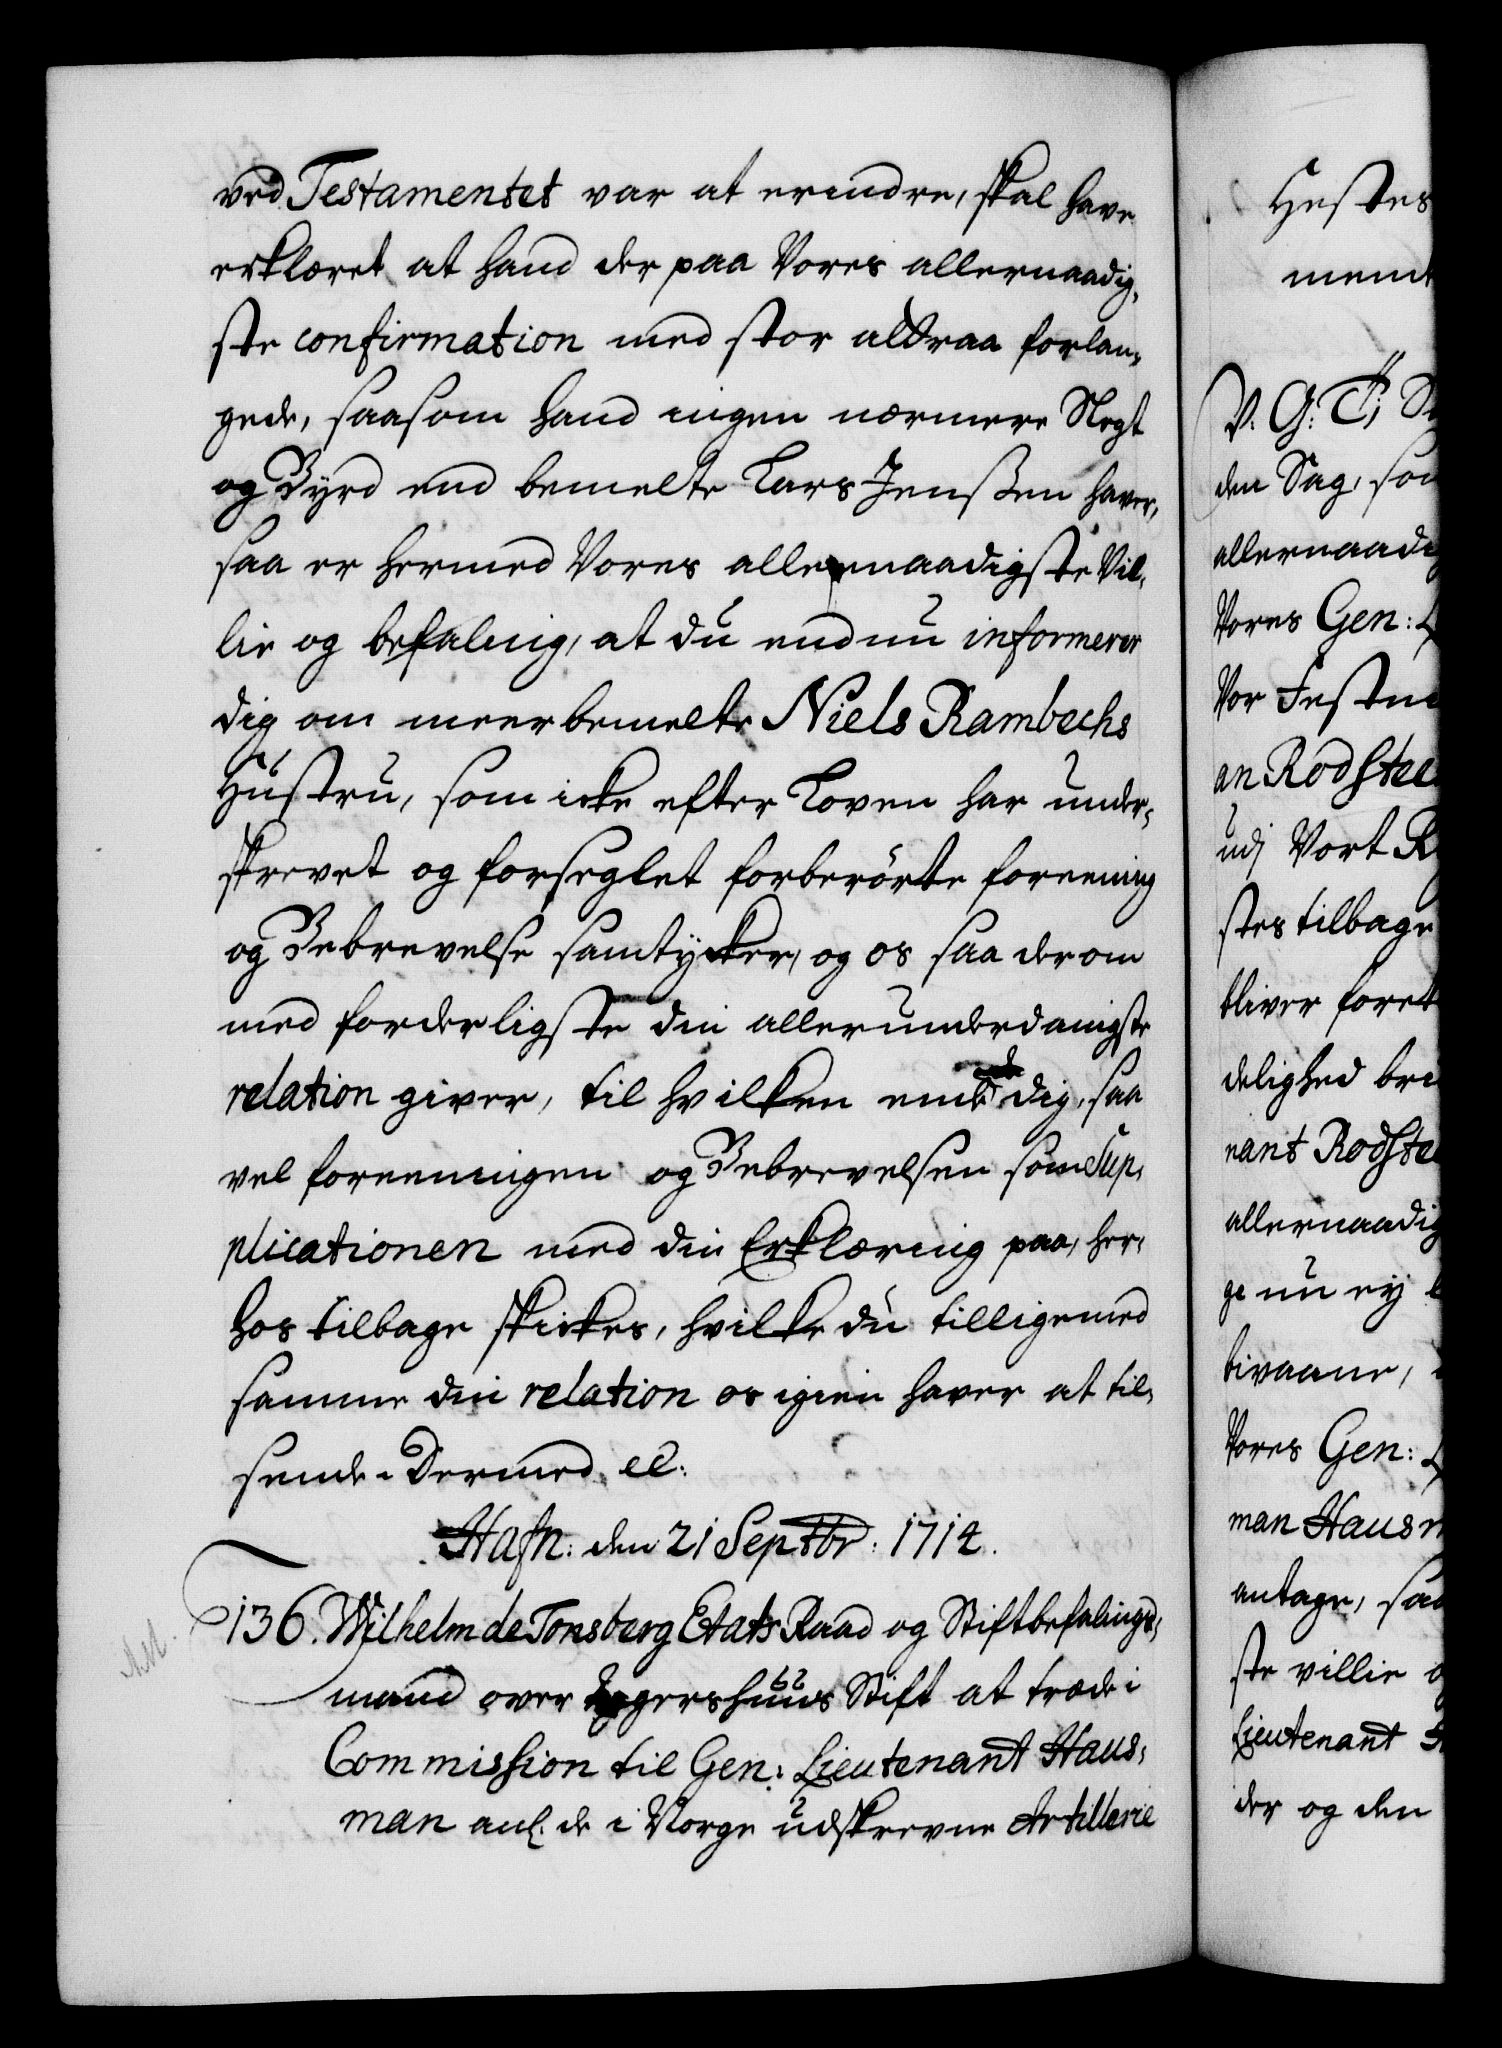 ved Testamentet var at erindre, skal have
erklæret at hand der paa Vores allernaadig-
ste confirmation med stor altraa forlan-
gede, saasom hand ingen nærmere Slegt
og Byrd end bemelte Lars Jenssen haver,
saa er hermed Vores allernaadigste Vil-
lie og befaling, at du endnu informerer
dig om meerbemelte Niels Rambechs
Hustru, som icke efter Loven har under-
skrevet og forseglet forberørte foreening
og Bebrevelse samtycker, og os saa derom
med forderligste din allerunderdanigste
relation giver, til hvilken ende dig, saa
vel foreeningen og Bebrevelsen som Sup-
plicationen med din Erklæring paa, her-
hos tilbage skickes, hvilke du tilligemed
samme din relation os igien haver at til-
sende. Dermed etc:
Hafn: den 21 Septbr: 1714.
136. Wilhelm de Tonsberg Etats Raad og Stiftbefalings-
mand over Aggershuus Stift at træde i
Commission til Gen: Lieutenant Haus-
man anl. de i Norge udskrevne Artillerie
Hestes
V. G. T;
den Sag, som
allernaadig
Vores Gen:
Vor
an Rodstee
udj Vort R
stes tilbage
bliver
delighed
nant Rodste
allernaadig
ge nu ey
bivaane,
Vores Gen:
man Hausm
antage, saa
ste villie
Lieutenant
der og den